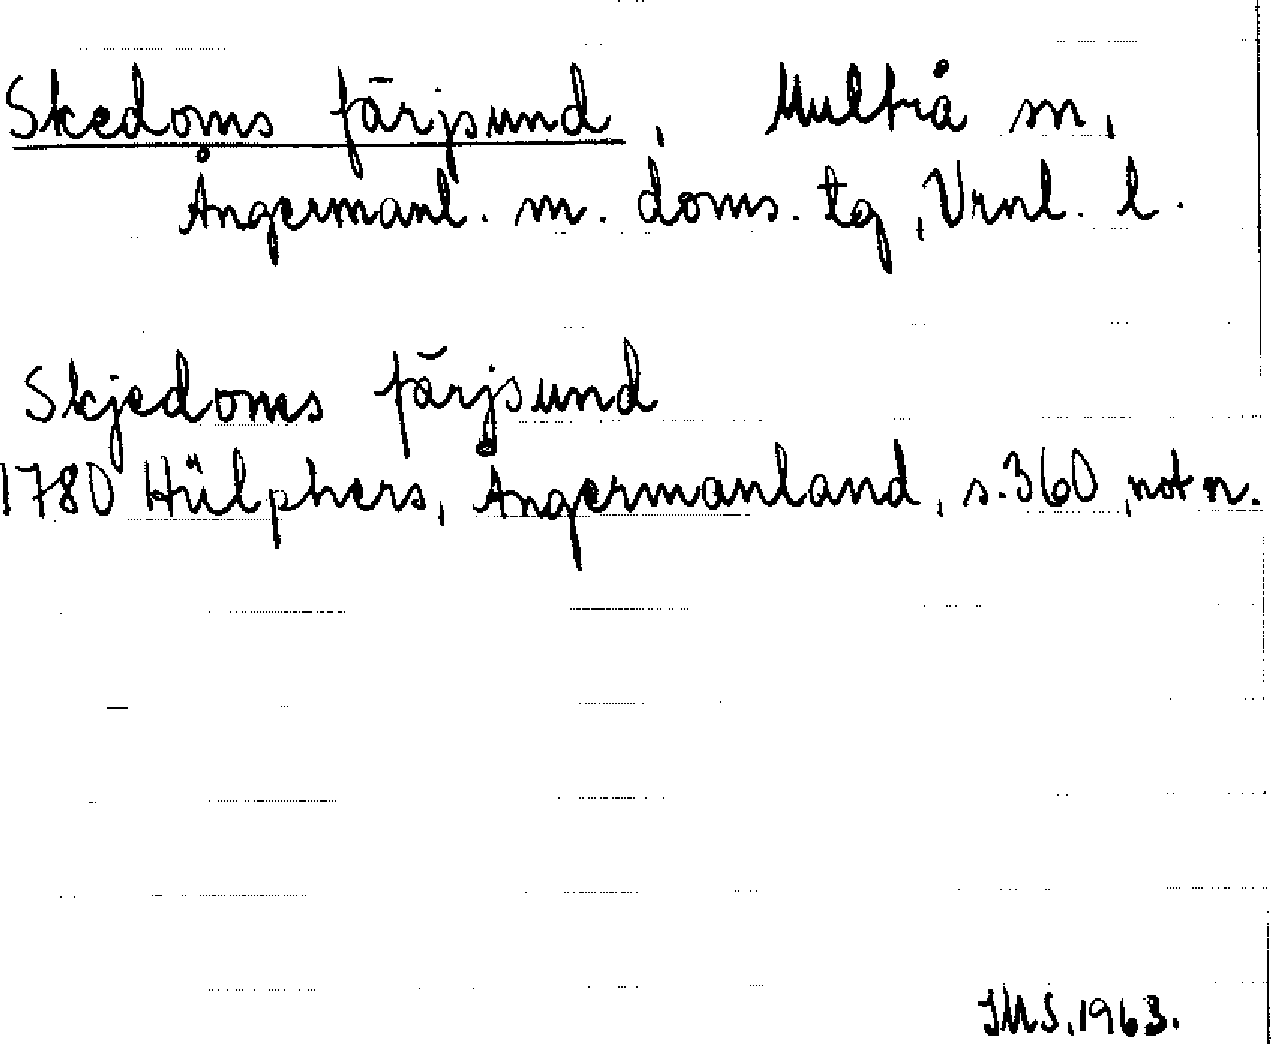 Skedoms färjsund, Multrå sn,
Ångermanl. m. doms. tg, Vrnl. l.
Skjedoms färjsund
1780 Hülphers, Ångermanland, s. 360, not n.
IMS. 1963.